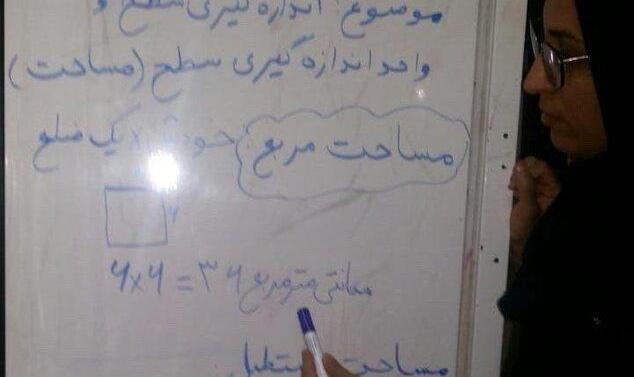 موضوع: اندازه گیری سطح و
واحد اندازه گیری سطح (مساحت)
مساحت مربع: خودش × یک ضلع
۶
۶×۶ = ۳۶ سانتی متر مربع
مساحت مستطیل